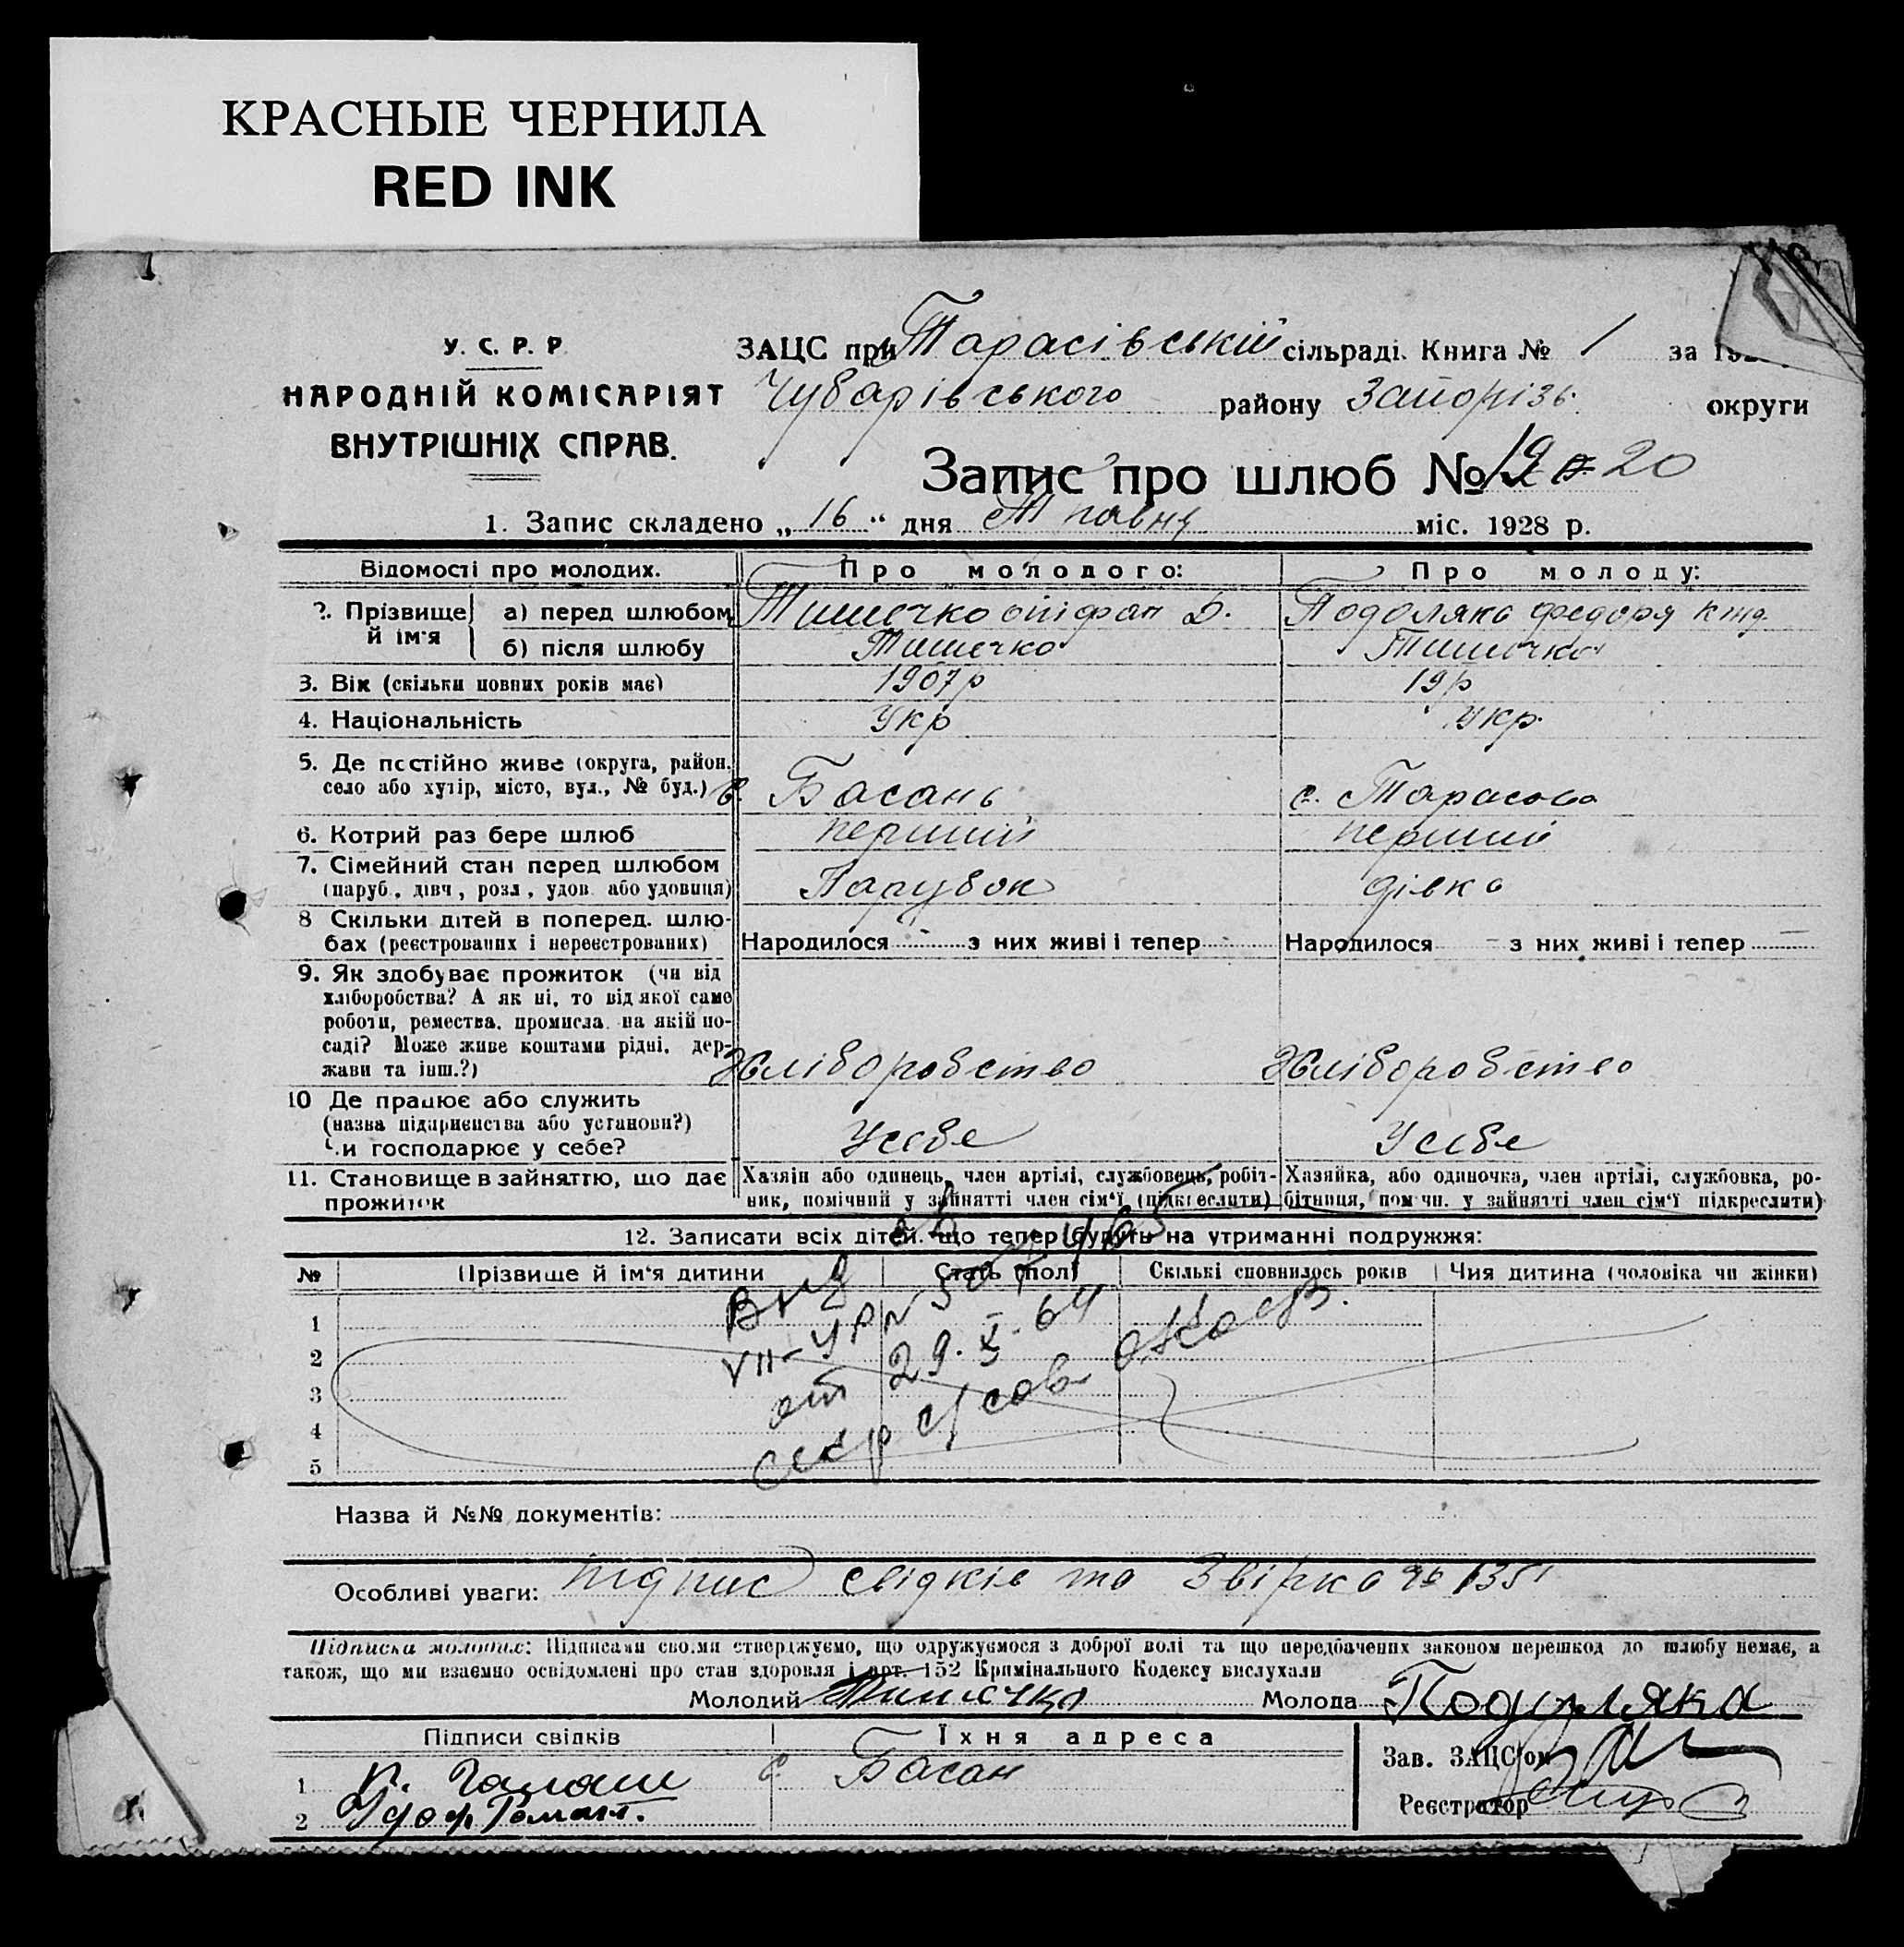 КРАСНЫЕ ЧЕРНИЛА
RED INK
У. С. Р. Р
НАРОДНІЙ КОМІСАРІЯТ
ВНУТРІШНІХ СПРАВ.
ЗАЦС при Тарасівській сільраді. Книга № 1 за 192
Чубарівського району Запорізь. округи
Запис про шлюб № 19 20
1. Запис складено „ 16 “ дня Травня міс. 1928 р.
Відомості про молодих. Про молодого: Про молоду:
2. Прізвище й ім'я а) перед шлюбом Тишечко Д. Подоляка Федора
б) після шлюбу Тишечко Тишечко
3. Вік (скільки повних років має) 1907р 19р
4. Національність Укр Укр.
5. Де постійно живе (округа, район,
село або хутір, місто, вул., № буд.) с. Басань с. Тарасова
6. Котрий раз бере шлюб перший перший
7. Сімейний стан перед шлюбом
(паруб., дівч., розл., удов. або удовиця) Парубок дівка
8 Скільки дітей в поперед. шлю-
бах (реєстрованих і нереєстрованих) Народилося - з них живі і тепер Народилося - з них живі і тепер -
9. Як здобуває прожиток (чи від
хліборобства? А як ні, то від якої само
роботи, ремества, промисла, на якій по-
саді? Може живе коштами рідні, дер-
жави та інш.?) Хліборобство Хліборобство
10 Де працює або служить
(назва підприємства або установи?)
Чи господарює у себе? У себе У себе
11. Становище в зайняттю, що дає
прожиток
Хазяїн або одинець, член артілі, службовець, робіт-
ник, помічний у зайнятті член сім'ї (підкреслити)
Хазяйка, або одиночка, член артілі, службовка, ро-
бітниця, помічн. у зайнятті член сім'ї підкреслити)
12. Записати всіх дітей. що тепер будуть на утриманні подружжя:
№ Прізвище й ім'я дитини Стать (пол) Скількі сповнилось років Чия дитина (чоловіка чи жінки)
1
2
3
4
5
VII-УР №
от 29.X-64
Назва й №№ документів:
Особливі уваги: Підпис свідків та Звірка 1351
Підписка молодих: Підписами своїми стверджуємо, що одружуємося з доброї волі та що передбачених законом перешкод до шлюбу немає, а
також, що ми взаємно освідомлені про стан здоровля і арт. 152 Кримінального Кодексу вислухали
Молодий Тишечко Молода Подоляка
Підписи свідків Їхня адреса
1 с. Басан
2
Зав. ЗАЦС'ом
Реєстратор